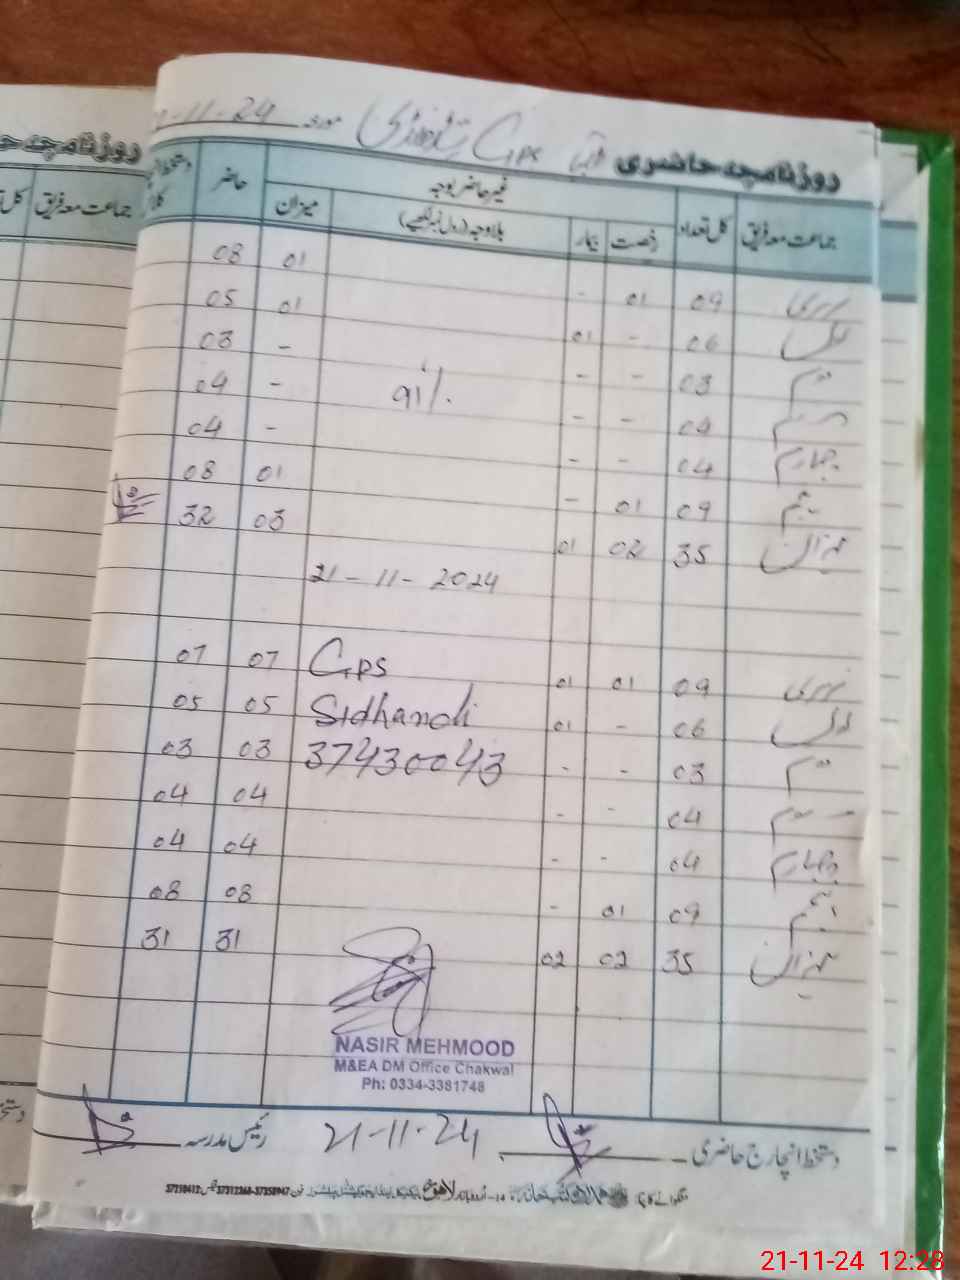 روزنامچہ حاضری GPS مورخہ -11-24
جماعت معہ فریق کل تعداد غیر حاضر بوجہ حاضر
رخصت بیمار بلاوجہ (رول نمبر لکھیے) میزان
نرسری 09 01 - 01 08
اول 06 - 01 01 05
دوم 03 - - - 03
سوم 04 - - 91% - 04
چہارم 04 - - - 04
پنجم 09 01 - 01 08
میزان 35 02 01 03 32
21-11-2024
نرسری 09 01 01 GPS 07 07
اول 06 - 01 Sidhandi 05 05
دوم 03 - - 37430043 03 03
سوم 04 - - 04 04
چہارم 04 - - 04 04
پنجم 09 01 - 08 08
میزان 35 02 02 31 31
NASIR MEHMOOD
M&EA DM Office Chakwal
Ph: 0334-3381748
دستخط انچارج حاضری 21-11-24 رئیس مدرسہ
جماعت معہ فریق
روزنامچہ
21-11-24 12:28